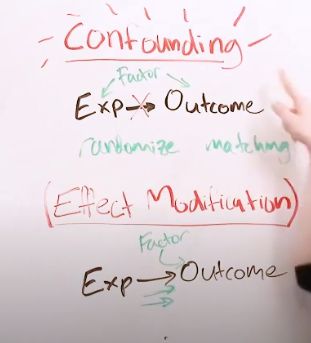 Confounding
Factor
Exp → Outcome
randomize matching
(Effect Modification)
Factor
Exp → Outcome